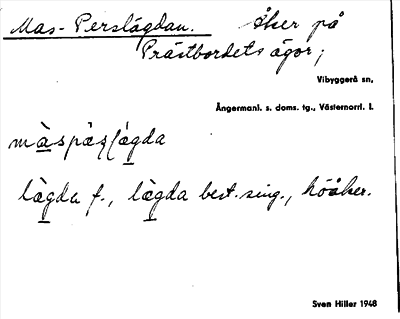 Mas-Perslägdan. Åker på
Prästbordets ägor;
Vibyggerå sn,
Ångermanl. s. doms. tg., Västernorrl. l.
màspæ̀ʂʅæ̀gda
lægda f., lægda best. sing., höåker.
Sven Hiller 1948